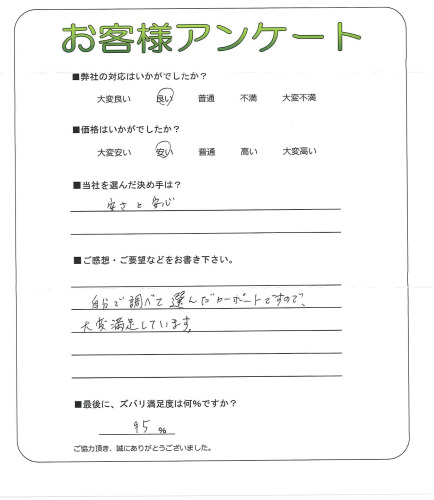 お客様アンケート
■弊社の対応はいかがでしたか？
大変良い 良い 普通 不満 大変不満
■価格はいかがでしたか？
大変安い 安い 普通 高い 大変高い
■当社を選んだ決め手は？
安さと安心
■ご感想・ご要望などをお書き下さい。
自分で調べて選んだカーポートですので、
大変満足しています。
■最後に、ズバリ満足度は何％ですか？
95 %
ご協力頂き、誠にありがとうございました。